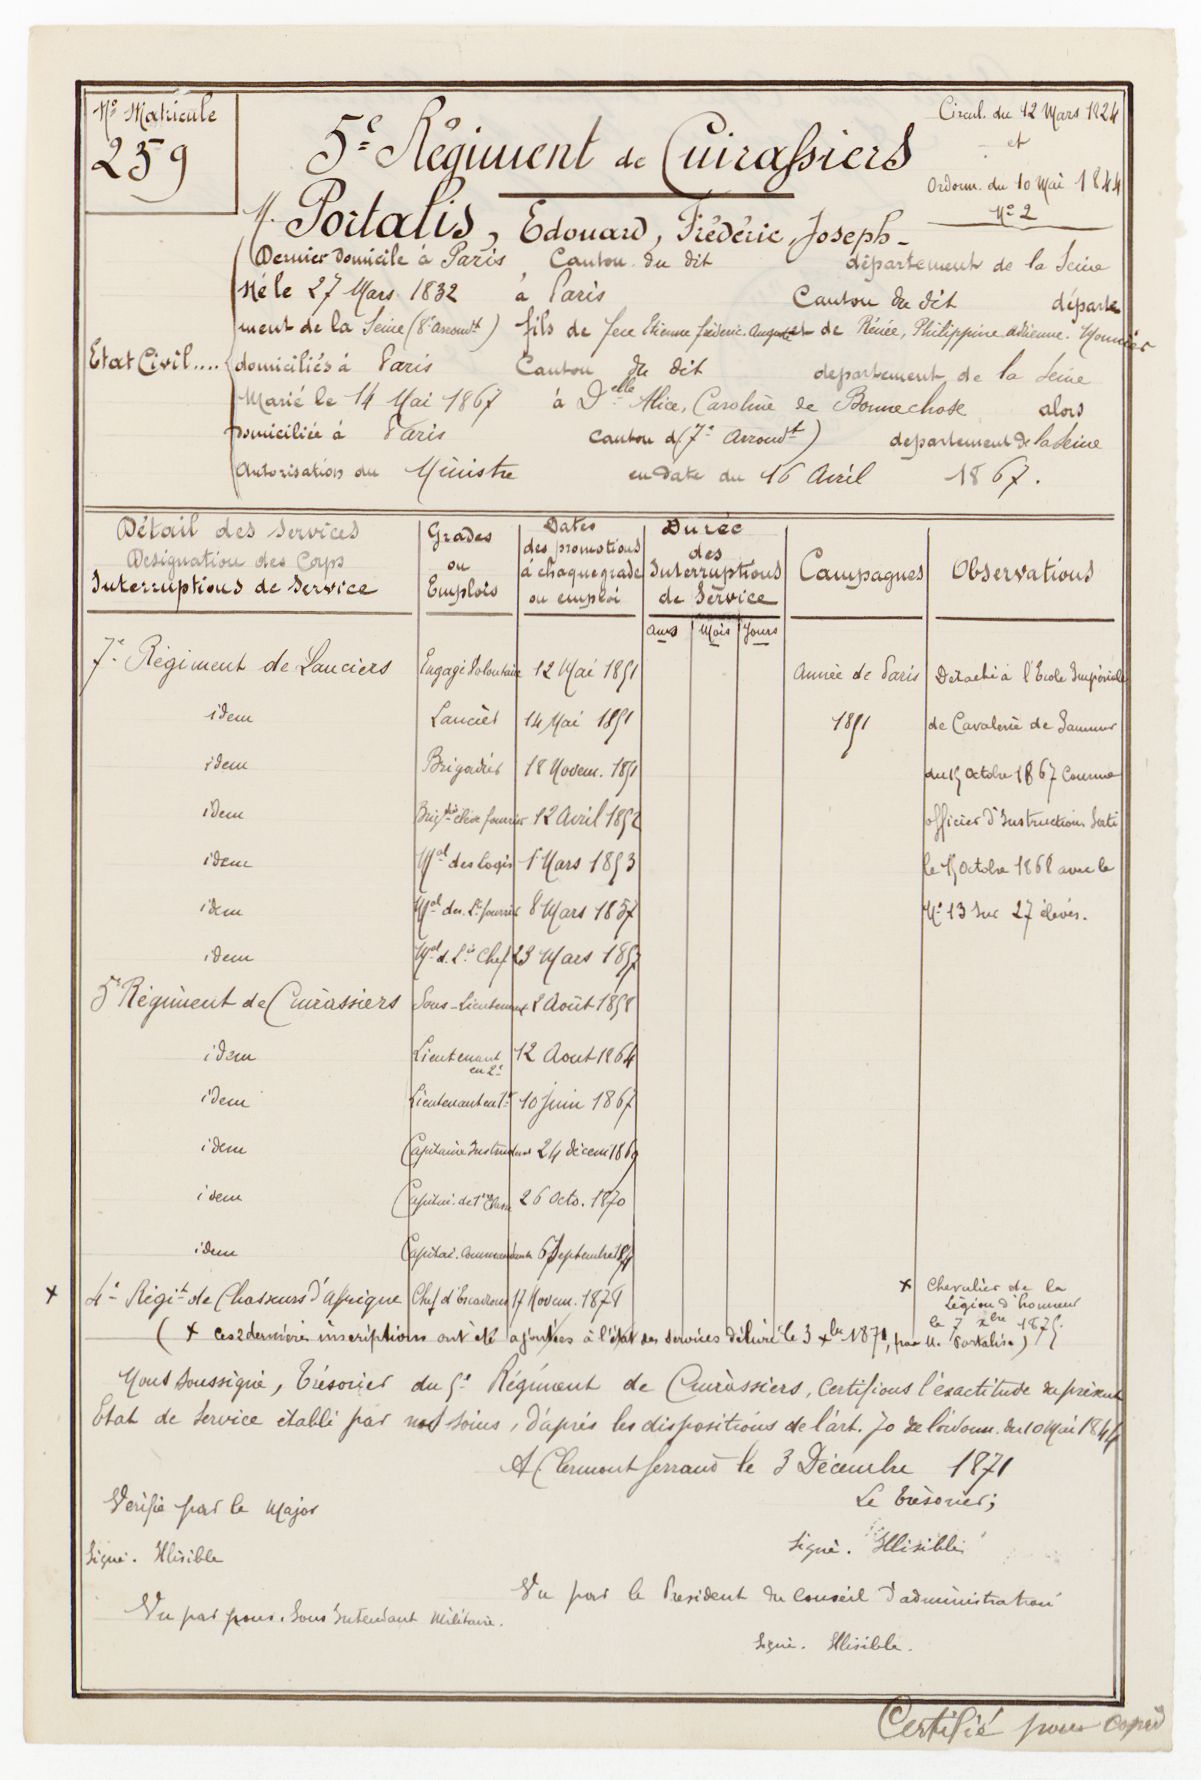 No Matricule
259
Circul. du 12 Mars 1824
et
Ordonn. du 10 Mai 1844
No 2
5e Régiment de Cuirassiers
M. Portalis, Edouard, Frédéric, Joseph-
Dernier domicile à Paris Canton du dit département de la Seine
Né le 27 Mars 1832 à Paris Canton du dit départe
ment de la Seine (8e arrondt) fils de feu Etienne frédéric Auguste et de Rénée, Philippine Adrienne Mounier
Etat Civil.... domiciliés à Paris Canton du dit département de la Seine
Marié le 14 Mai 1867 à Delle Alice, Caroline de Bonnechose alors
domiciliée à Paris canton d (7e arrondt) département de la Seine
Autorisation du Ministre en date du 16 Avril 1867.
Détail des services
Désignation des Corps
Interruptions de Service
Grades
ou
Emplois
Dates
des promotions
à chaque grade
ou emploi
Durée
des
Interruptions
de Service
Ans Mois Jours
Campagnes
Observations
7e Régiment de Lanciers Engagé Volontaire 12 Mai 1851 Armée de Paris Détaché à l'Ecole Impériale
idem Lancier 14 Mai 1851 1851 de Cavalerie de Saumur
idem Brigadier 18 Novem. 1851 du 15 Octobre 1867 Comme
idem Brigdier élève fourrier 12 Avril 1852 officier d'Instruction Sorti
idem Mal des Logis 1 Mars 1853 le 15 Octobre 1868 avec le
idem Mal des Ls fourrier 8 Mars 1857 No 13 sur 27 élèves.
idem Mal d. Lis Chef 23 Mars 1857
5e Régiment de Cuirassiers Sous-Lieutenant 2 Août 1858
idem Lieutenant en 2e 12 Aout 1864
idem Lieutenant en 1er 10 Juin 1867
idem Capitaine Instructeur 24 décem 1869
idem Capitai. de 1ère Classe 26 Octo. 1870
idem Capitai. Commandant 6 Septembre 1871
x 4e Régit de Chasseurs d'Afrique Chef d'Escadrons 17 Novem. 1874
x Chevalier de la
Légion d'honneur
le 7 xbre 1875.
(x ces 2 dernières inscriptions ont été ajoutées à l'état des services délivré le 3 xbre 1871, par M. Portalis.)
Nous soussigné, Trésorier du 5e Régiment de Cuirassiers, Certifions l'exactitude du présent
Etat de Service établi par nos soins, d'après les dispositions de l'art. 70 de l'ordonn. du 10 Mai 1844
A Clermont ferrand le 3 Décembre 1871
Le Trésorier;
Vérifié par le Major
Signé. Illisible
Signé. Illisible
Vu par le Président du Conseil d'administration
Vu par nous. Sous Intendant Militaire.
Signé. Illisible.
Certifié pour copie